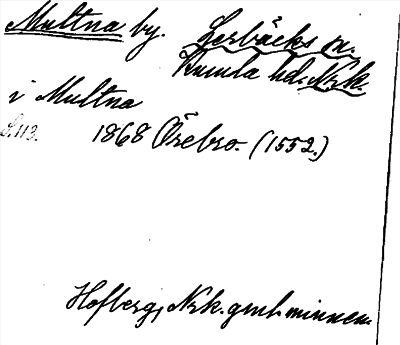 Multna by. Lerbäcks sn.
Kumla hd. Nrk.
i Multna
S. 113. 1868 Örebro. (1552.)
Hofberg, Nrk. gml. minnen.